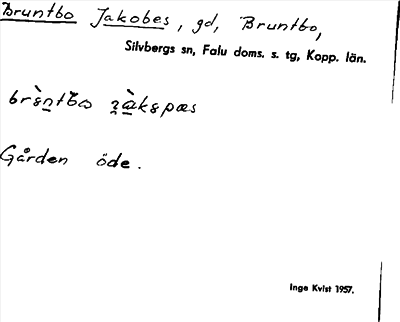 Bruntbo Jakobes, gd, Bruntbo,
Silvbergs sn, Falu doms. s. tg, Kopp. län.
Gården öde.
Inge Kvist 1957.